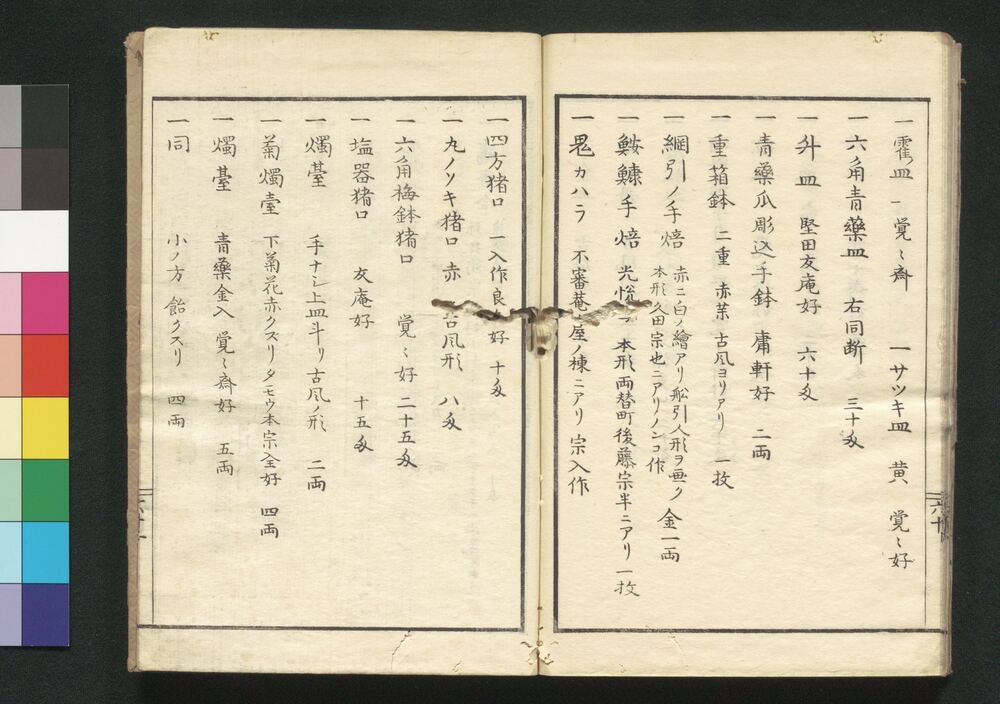 一 霍皿 一 覚〻斎 一 サツキ皿 黄 覚〻好
一 六角青藥皿 右同断 三十匁
一 舛皿 堅田友庵好 六十匁
一 青藥瓜彫込手鉢 庸軒好 二両
一 重箱鉢 二重 赤茉 古凬ヨリアリ 一枚
一 網引ノ手焙 赤ニ白ノ繪アリ舩引人形ヲ画ク 金一両
本形久田宗也ニアリノンコ作
一 鮟鱇手焙 光悦 本形両替町後藤宗半ニアリ 一枚
一 鬼カハラ 不審菴 屋ノ棟ニアリ 宗入作
一 四方猪口 一入作良 好 十匁
一 丸ノソキ猪口 赤 古凬形 八匁
一 六角梅鉢猪口 覚〻好 二十五匁
一 塩器猪口 友庵好 十五匁
一 燭臺 手ナシ上皿斗リ古凬ノ形 二両
一 菊燭臺 下菊花赤クスリタモウ本宗全好 四両
一 燭臺 青藥金入 覚〻斎好 五両
一 同 小ノ方 飴クスリ 四両
六十